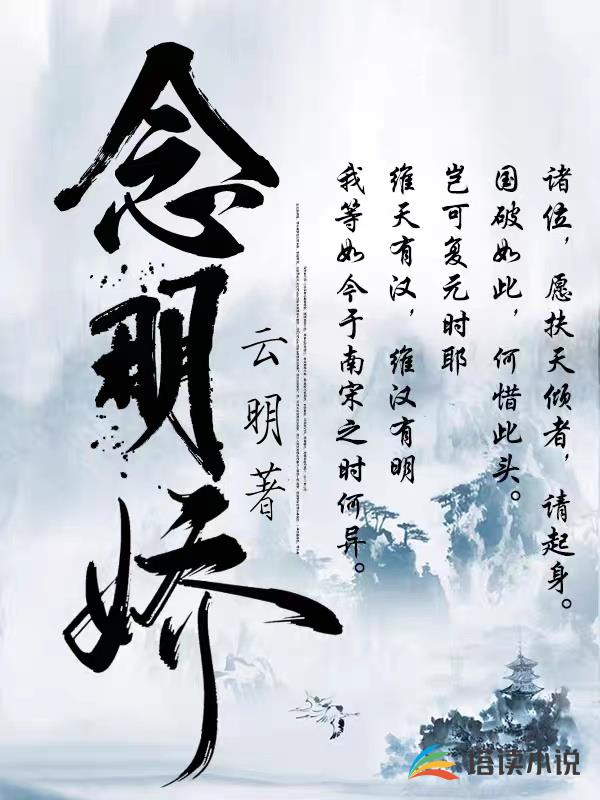 念明娇
云明著
诸位，愿扶天倾者，请起身。
国破如此，何惜此头。
岂可复元时耶
维天有汉，维汉有明
我等如今于南宋之时何异。
塔读小说